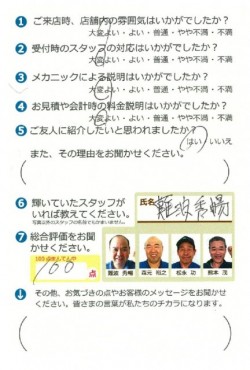 1 ご来店時、店舗内の雰囲気はいかがでしたか？
大変よい・よい・普通・やや不満・不満
2 受付時のスタッフの対応はいかがでしたか？
大変よい・よい・普通・やや不満・不満
3 メカニックによる説明はいかがでしたか？
大変よい・よい・普通・やや不満・不満
4 お見積や会計時の料金説明はいかがでしたか？
大変よい・よい・普通・やや不満・不満
5 ご友人に紹介したいと思われましたか？
はい・いいえ
また、その理由をお聞かせください。
6 輝いていたスタッフがいれば教えてください。
写真以外のスタッフの名前でもかまいません。
氏名
難波秀暢
7 総合評価をお聞かせください。
100点まんてん中
100 点
難波 秀暢
森元 恒之
松永 功
熊本 茂
その他、お気づきの点やお客様のメッセージをお聞かせください。皆さまの言葉が私たちのチカラになります。